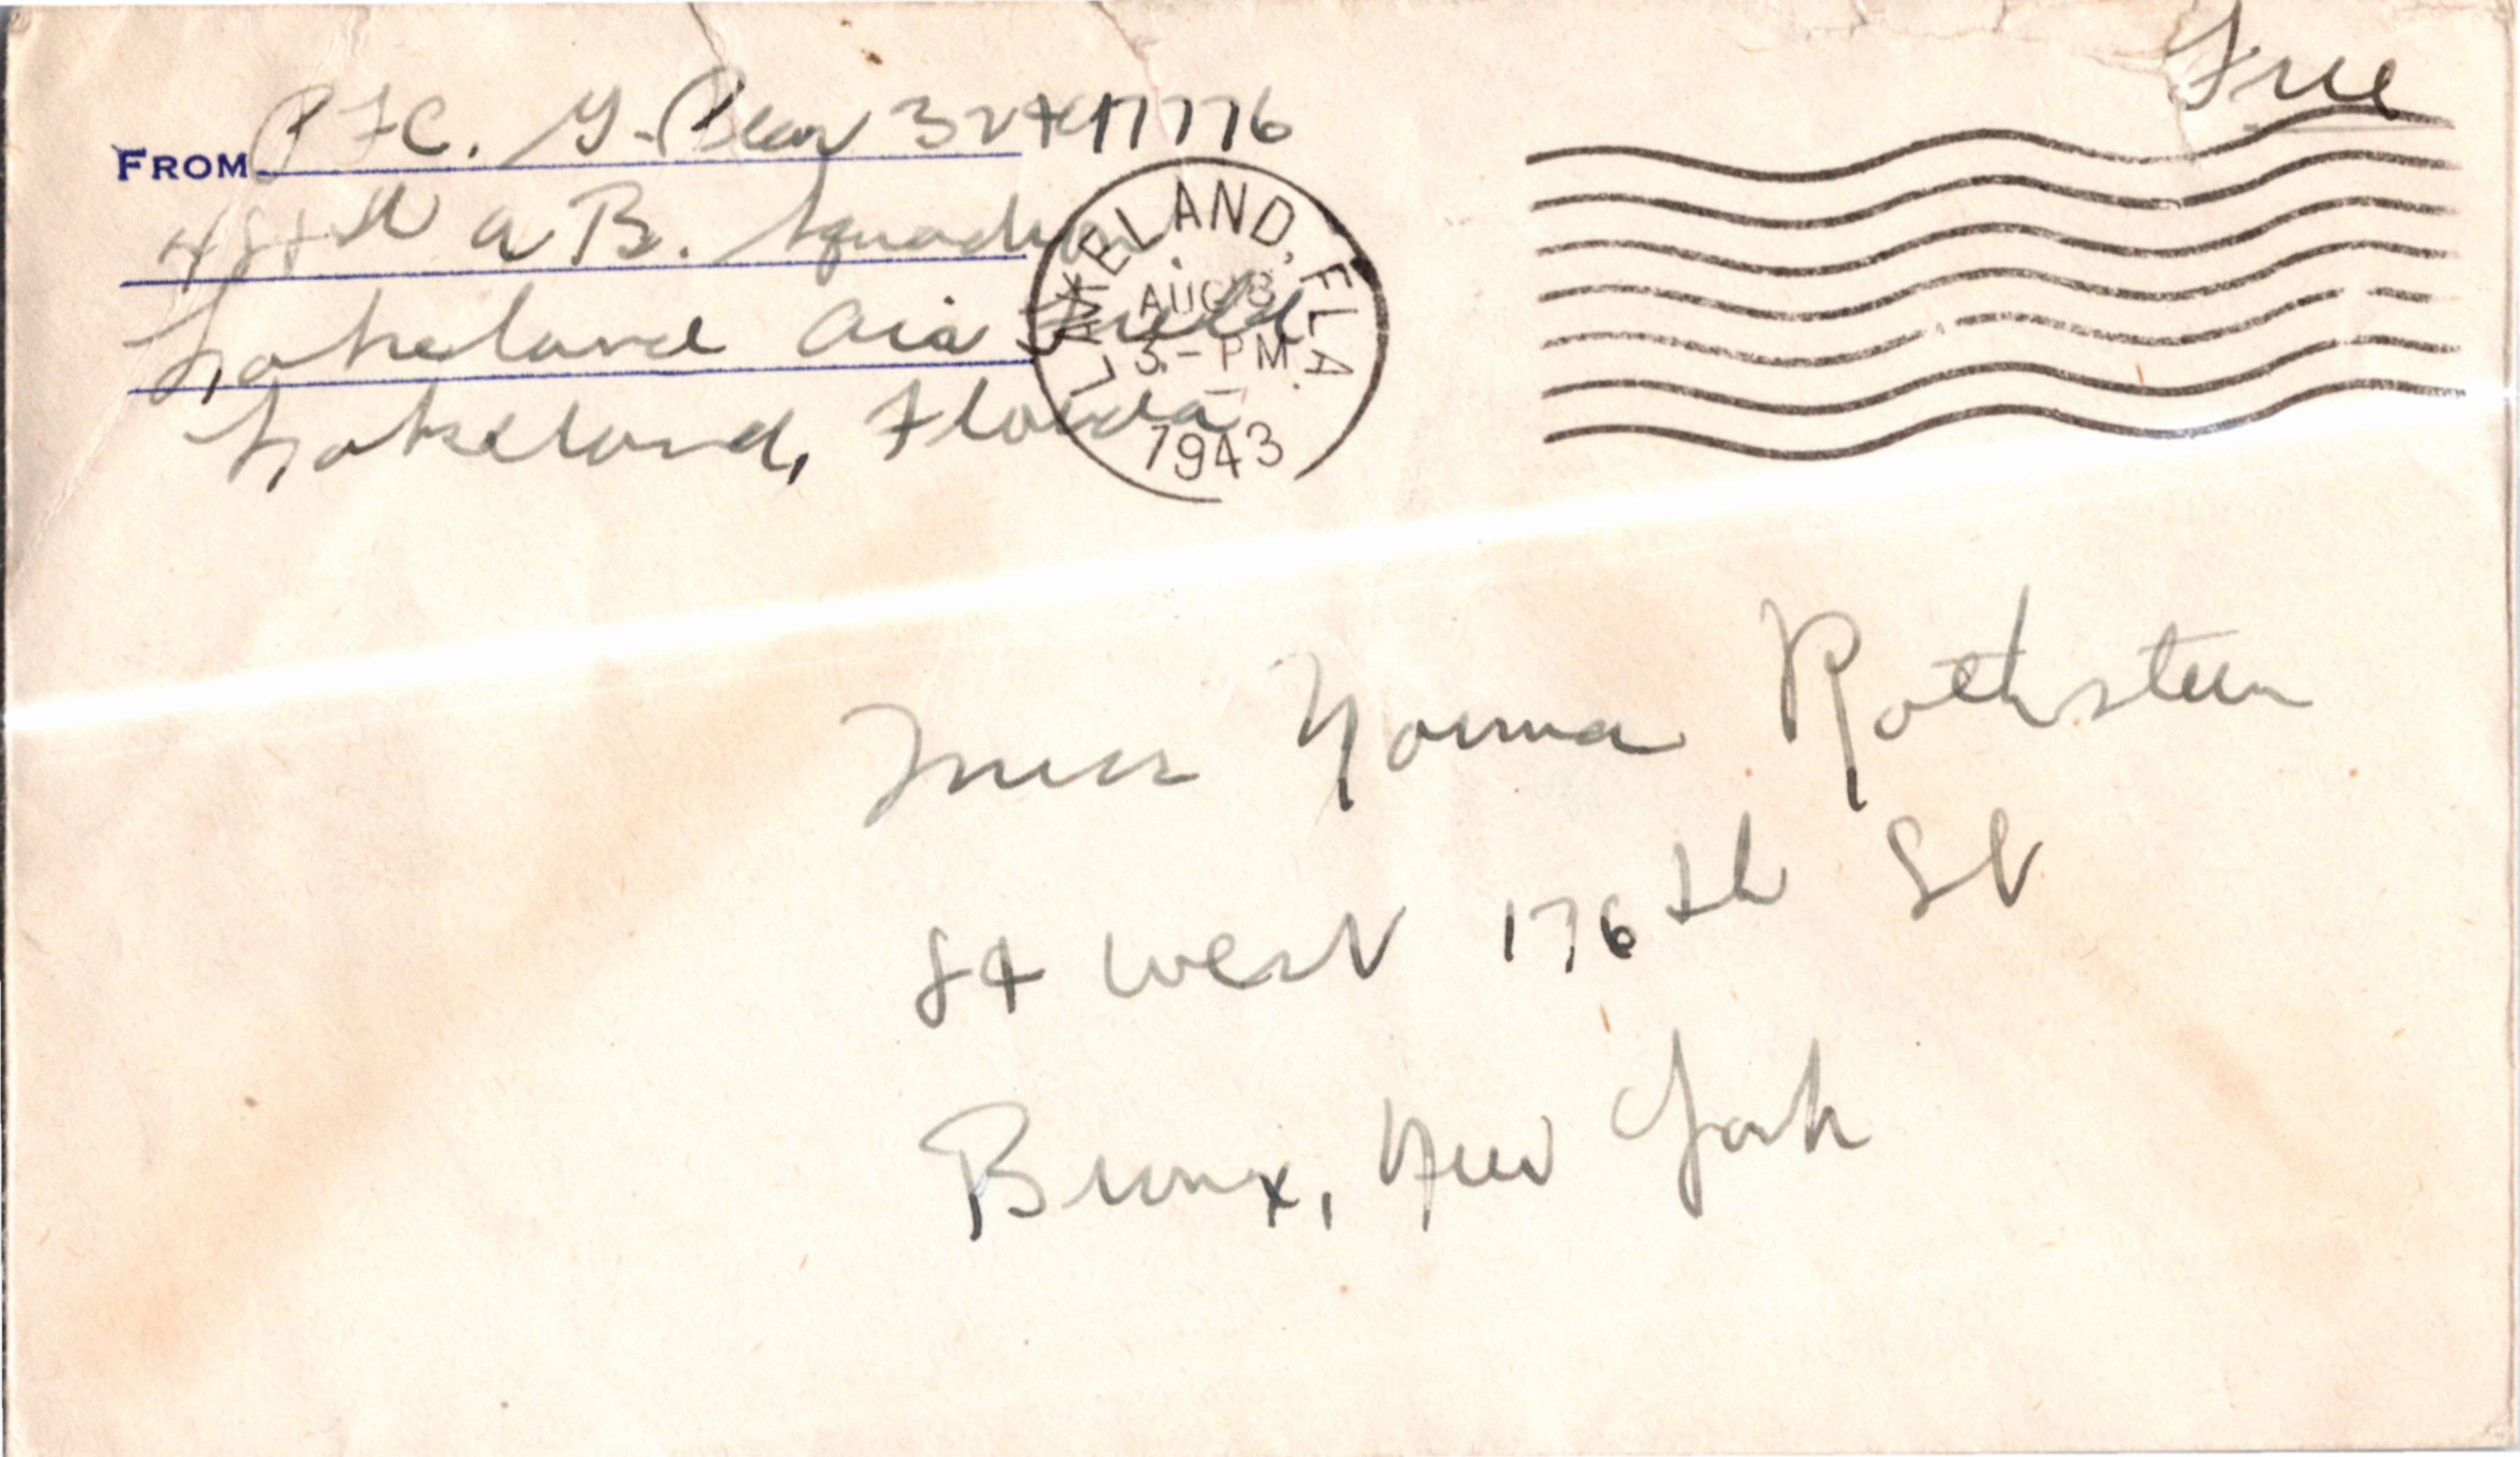 Free
FROM PFC. G. Pear 32417776
488th A B. Squadron
Lakeland Air Field
Lakeland, Florida
LAKELAND, FLA.
AUG 8
3 - PM
1943
Miss Norma Rothstein
84 West 176th St
Bronx, New York